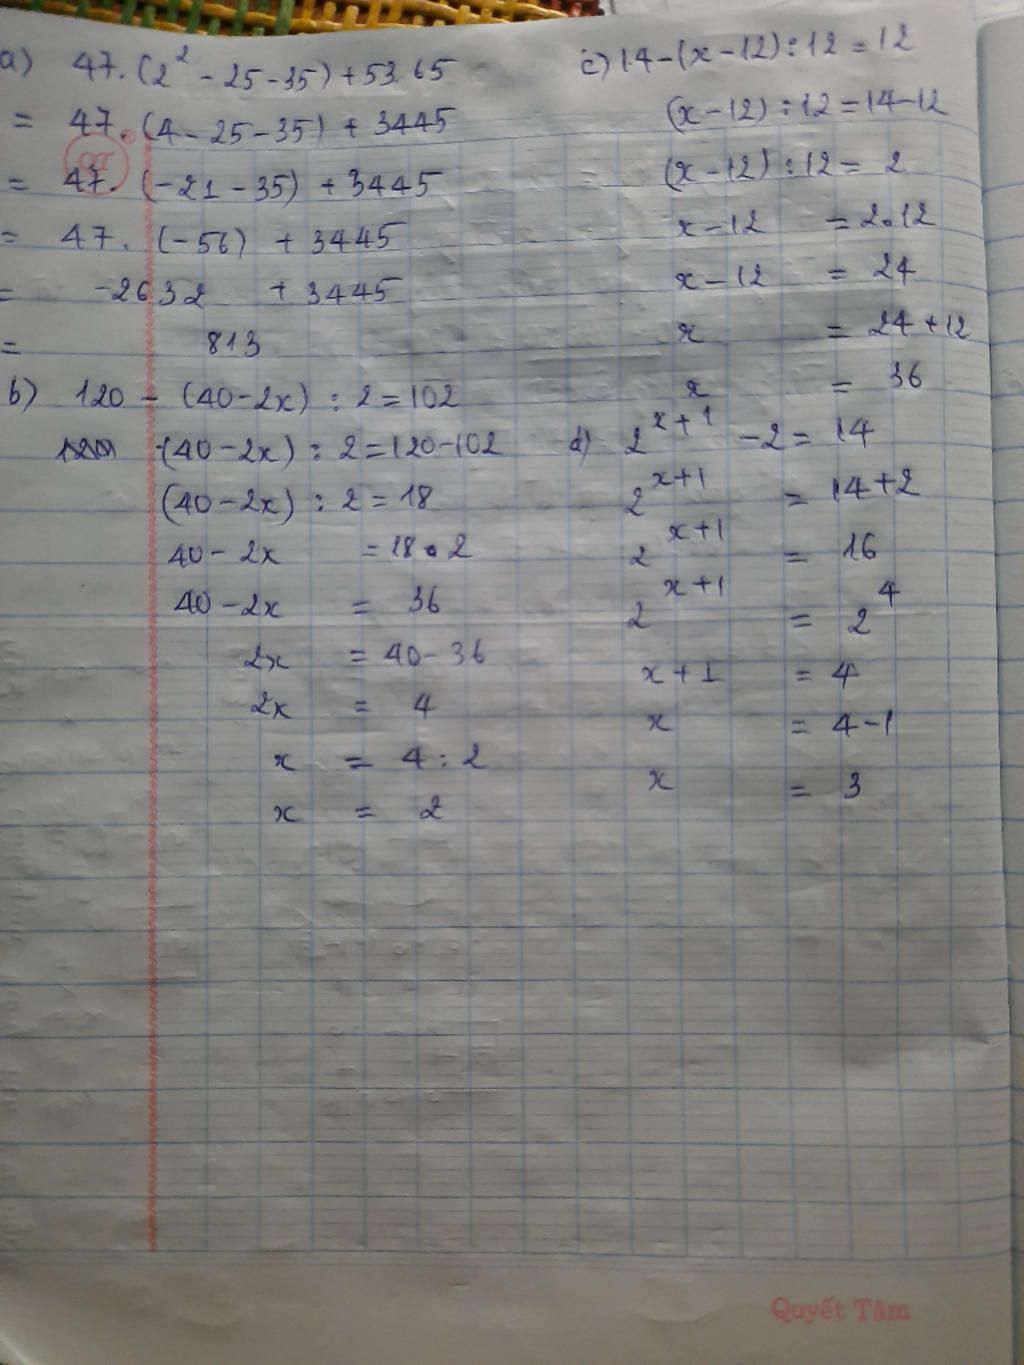 a) 47.(2² - 25 - 35) + 53.65
= 47.(4 - 25 - 35) + 3445
= 47. (-21 - 35) + 3445
= 47. (-56) + 3445
= -2632 + 3445
= 813
b) 120 - (40-2x) : 2 = 102
(40-2x) : 2 = 120-102
(40-2x) : 2 = 18
40 - 2x = 18.2
40 - 2x = 36
2x = 40-36
2x = 4
x = 4 : 2
x = 2
c) 14-(x-12):12 = 12
(x-12) : 12 = 14-12
(x-12) : 12 = 2
x-12 = 2.12
x-12 = 24
x = 24+12
x = 36
d) 2^{x+1} - 2 = 14
2^{x+1} = 14+2
2^{x+1} = 16
2^{x+1} = 2⁴
x+1 = 4
x = 4-1
x = 3
Quyết Tâm